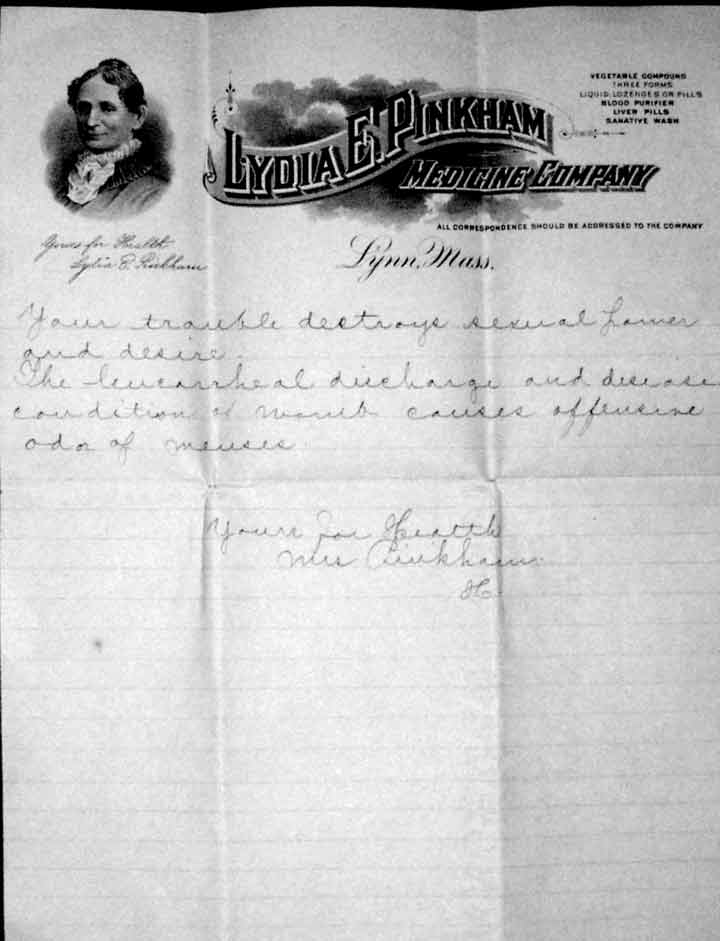 VEGETABLE COMPOUND
THREE FORMS
LIQUID, LOZENGES OR PILLS
BLOOD PURIFIER
LIVER PILLS
SANATIVE WASH
LYDIA E. PINKHAM
MEDICINE COMPANY
ALL CORRESPONDENCE SHOULD BE ADDRESSED TO THE COMPANY
Yours for Health
Lydia E. Pinkham
Lynn, Mass.
Your trouble destroys sexual power
and desire.
The leucorrheal discharge and disease
condition of womb causes offensive
odor of menses.
Yours for Health
Mrs Pinkham.
H